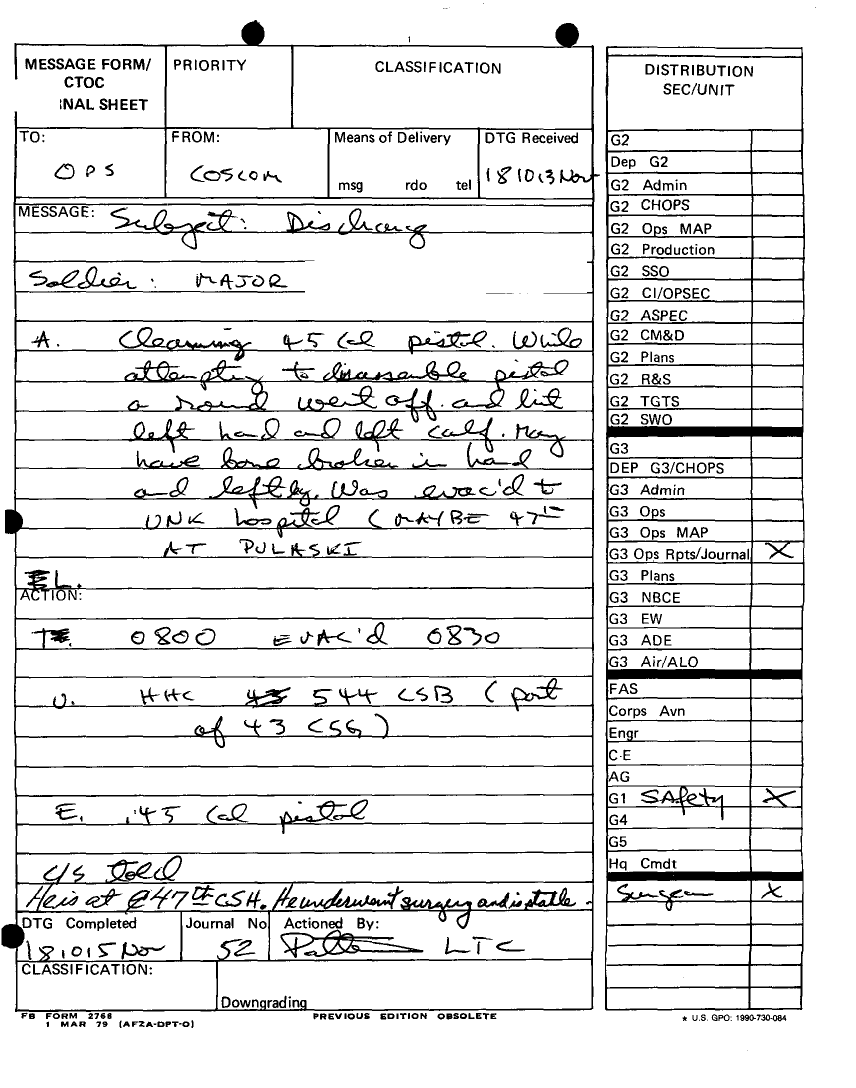 1
MESSAGE FORM/
CTOC
INAL SHEET
PRIORITY
CLASSIFICATION
TO:
OPS
FROM:
COSCOM
Means of Delivery
msg rdo tel
DTG Received
181013Nov
MESSAGE: Subject: Discharg
Soldier: MAJOR
A. Cleaning 45 Cal pistol. While
attempting to disassemble pistol
a round went off. and hit
left hand and left calf. May
have bone broken in hand
and left leg. Was evac'd to
UNK hospital (MAYBE 47th
AT PULASKI
L.
ACTION:
T. 0800 EVAC'd 0830
U. HHC 544 CSB (part
of 43 CSG)
E. .45 Cal pistol
C/S told
He is at @47th CSH. He underwent surgery and is stable.
DTG Completed
181015 Nov
Journal No
52
Actioned By:
LTC
CLASSIFICATION:
Downgrading
FB FORM 2768
1 MAR 79 (AFZA-DPT-O)
PREVIOUS EDITION OBSOLETE
DISTRIBUTION
SEC/UNIT
G2
Dep G2
G2 Admin
G2 CHOPS
G2 Ops MAP
G2 Production
G2 SSO
G2 CI/OPSEC
G2 ASPEC
G2 CM&D
G2 Plans
G2 R&S
G2 TGTS
G2 SWO
G3
DEP G3/CHOPS
G3 Admin
G3 Ops
G3 Ops MAP
G3 Ops Rpts/Journal X
G3 Plans
G3 NBCE
G3 EW
G3 ADE
G3 Air/ALO
FAS
Corps Avn
Engr
C-E
AG
G1 SAfety X
G4
G5
Hq Cmdt
Surgeon X
* U.S. GPO: 1990-730-084